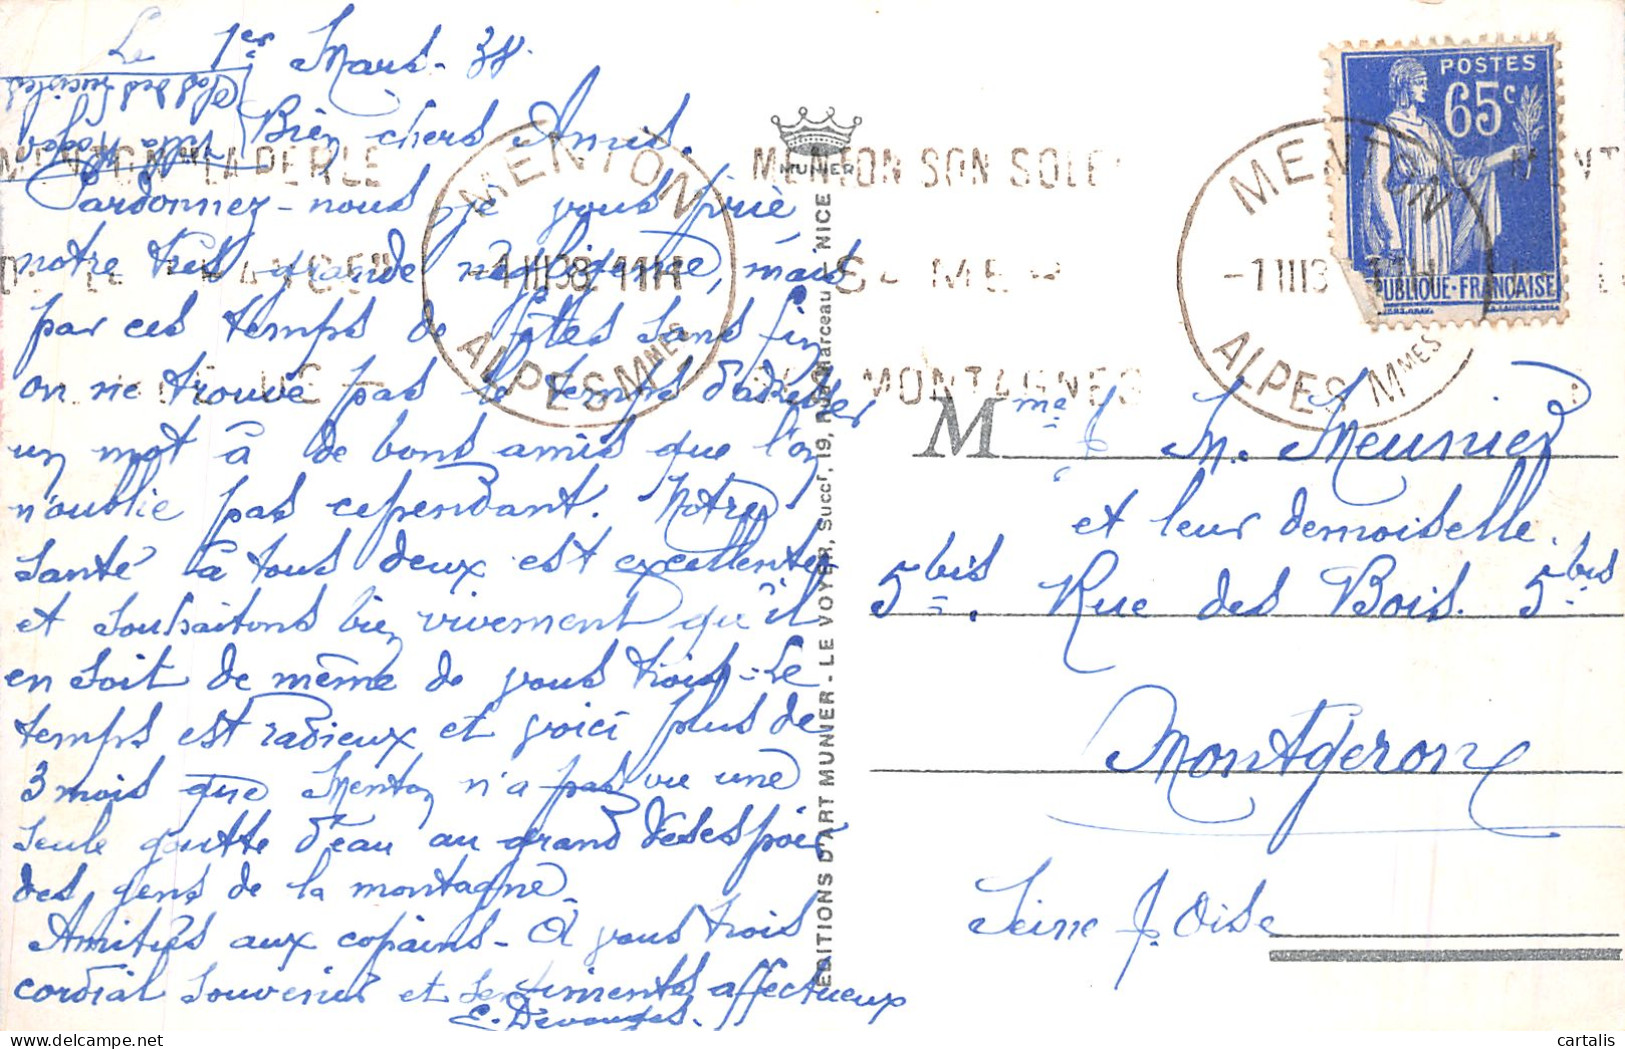 Le 1er Mars - 38.
Villa Roger
Clos des
Bien chers Amis.
Pardonnez-nous je vous prie
notre très grande négligence, mais
par ces temps de fêtes sans fin
on ne trouve pas le temps d'adresser
un mot à de bons amis que l'on
n'oublie pas cependant. Notre
santé à tous deux est excellente
et souhaitons bien vivement qu'il
en soit de même de vous trois - Le
temps est radieux et voici plus de
3 mois que Menton n'a pas vu une
seule goutte d'eau au grand désespoir
des gens de la montagne.
Amitiés aux copains - A vous trois
cordial souvenir et sentiments affectueux
MENTON "LA PERLE
DE LA FRANCE"
MENTON
-1 III 38 11H
ALPES Mmes
MUNIER
EDITIONS D'ART MUNIER - LE VOYER, Succr, 19, Rue Marceau, NICE
MENTON SON SOLEIL
SA MER
SES MONTAGNES
MENTON
-1 III 3 11H
ALPES Mmes
POSTES
65c
PUBLIQUE-FRANÇAISE
Mme & M. Meunier
et leur demoiselle.
5bis. Rue des Bois. 5bis
Montgeron
Seine & Oise
cartalis